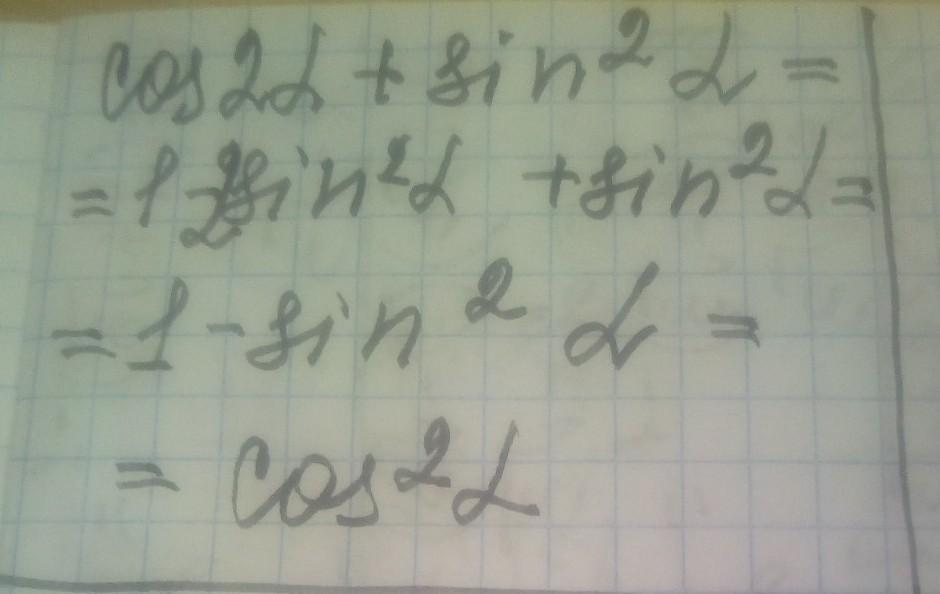 cos2α + sin²α =
= 1 - 2sin²α + sin²α =
= 1 - sin²α =
= cos²α